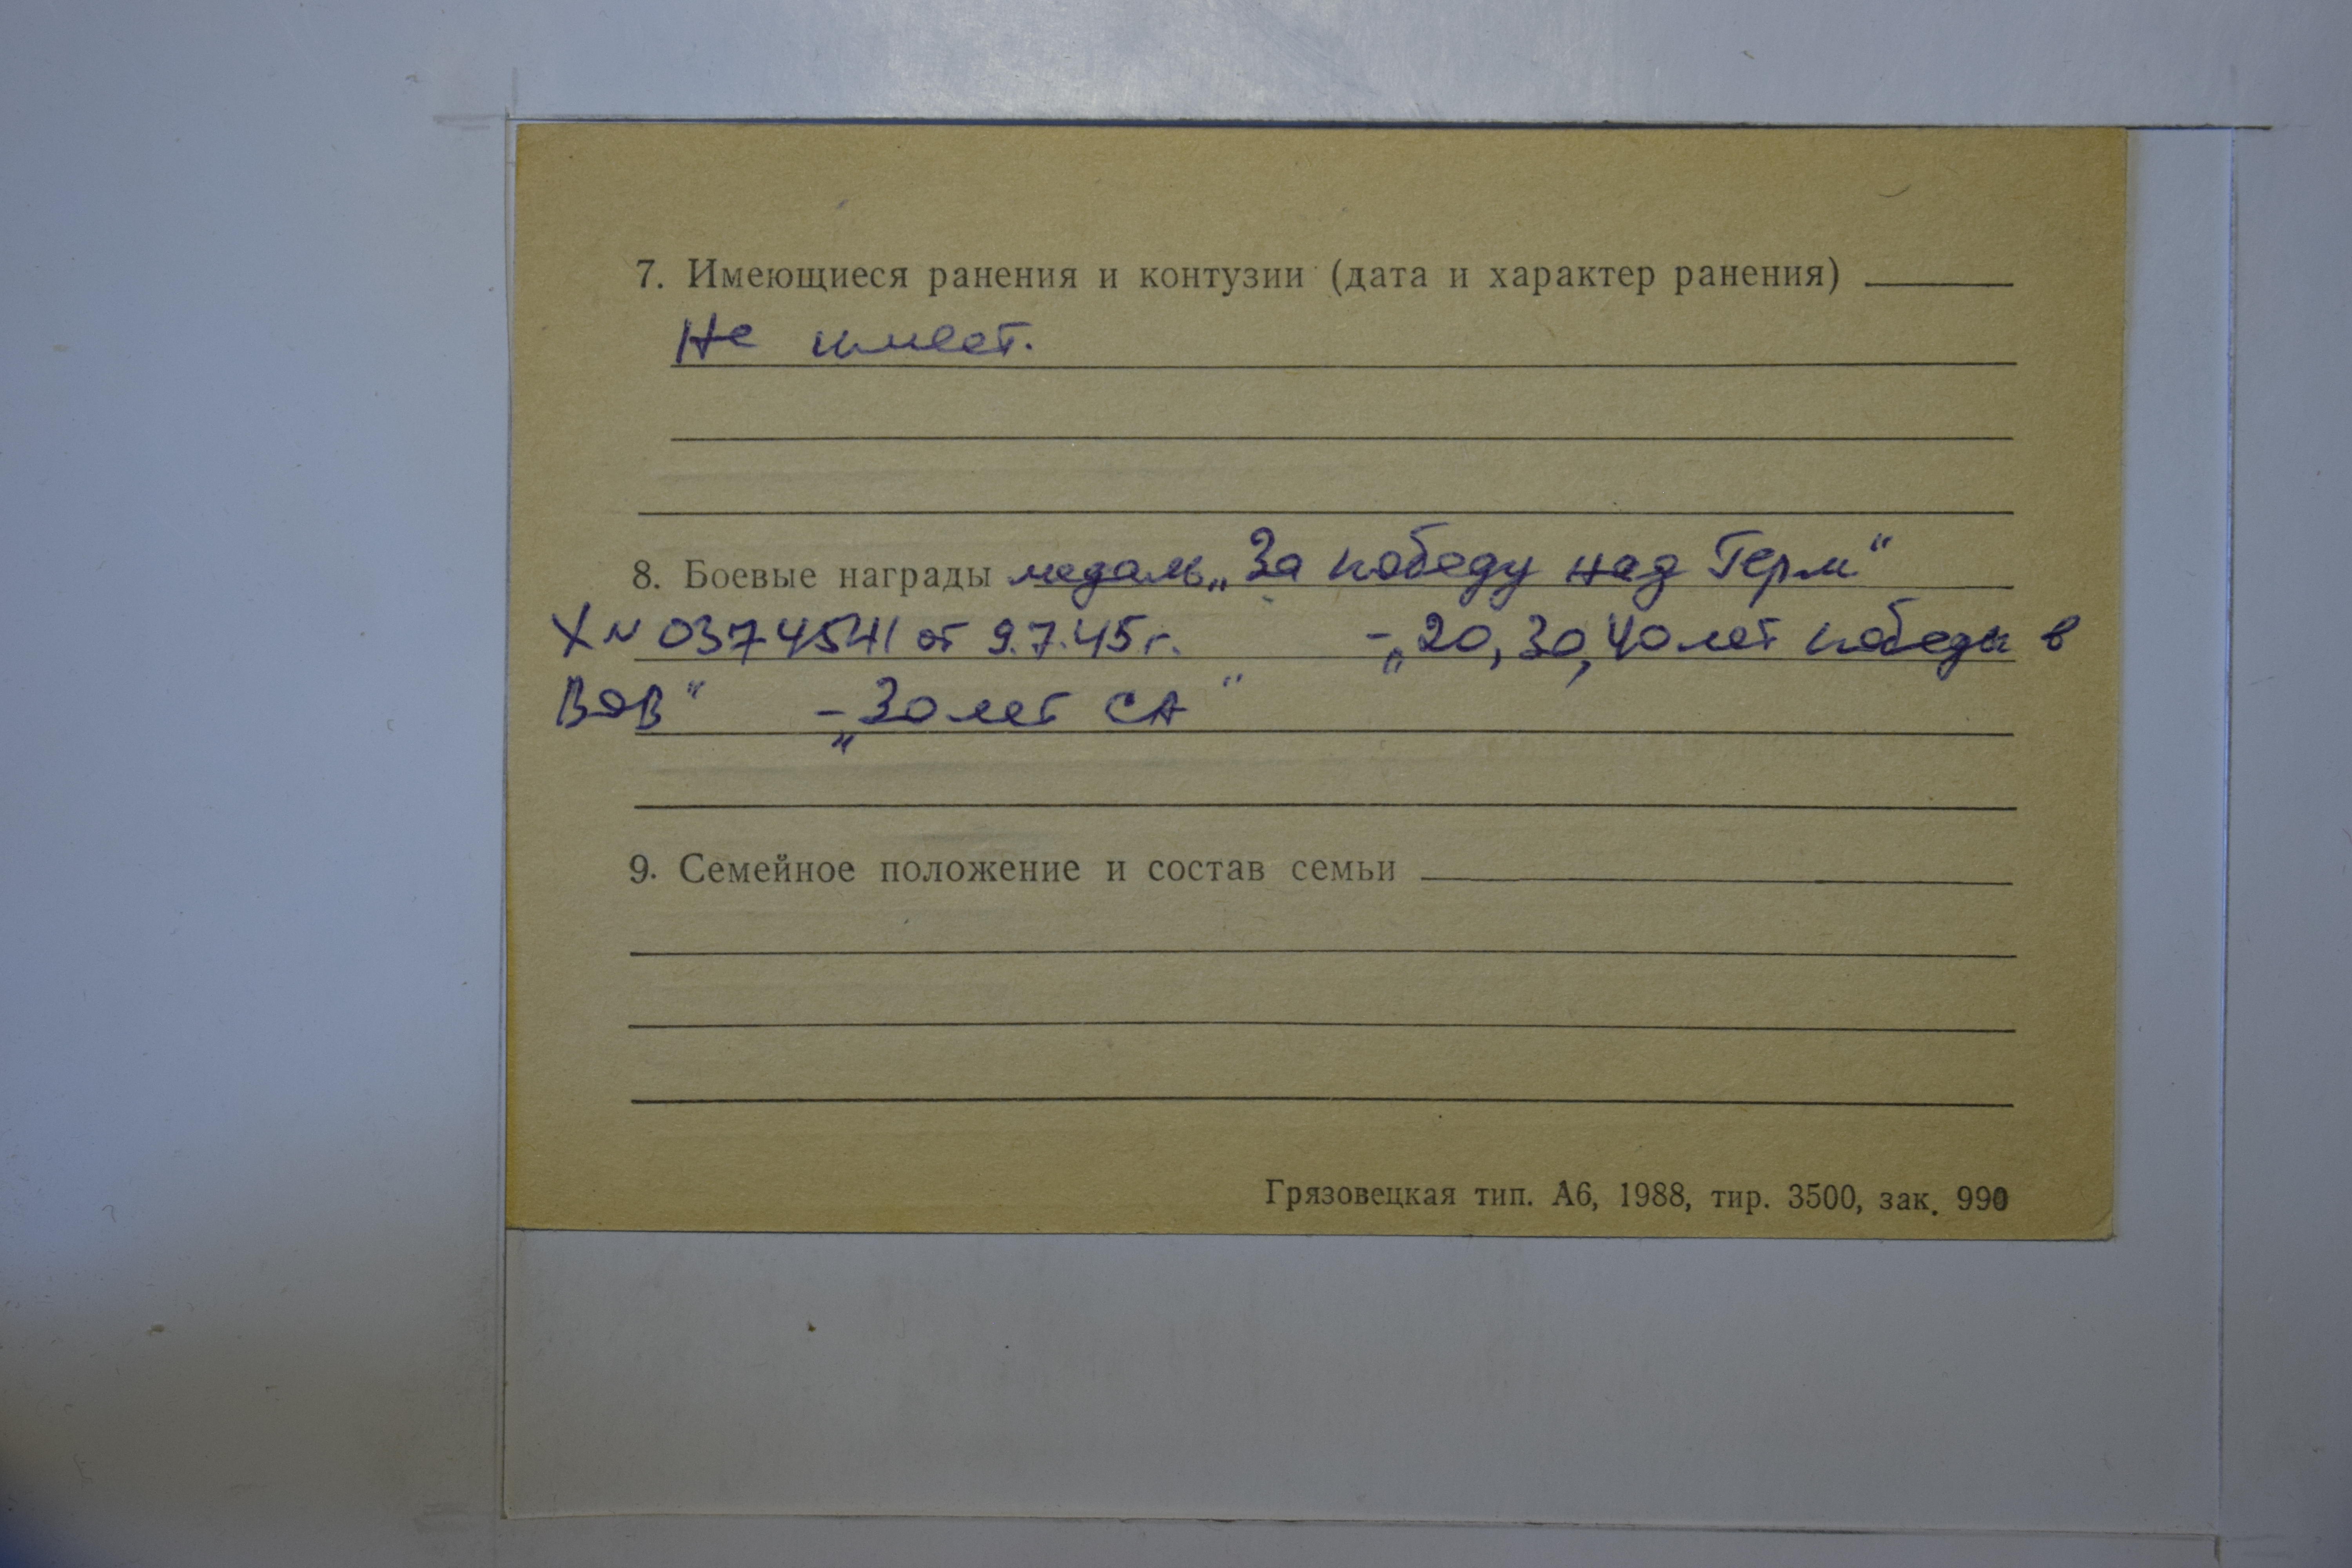 7. Имеющиеся ранения и контузии (дата и характер ранения)
Не имеет.
8. Боевые награды медаль „За победу над Герм“
Х N 0374541 от 9.7.45 г. - „20, 30, 40 лет победы в
ВОВ“ - „30 лет СА“
9. Семейное положение и состав семьи
Грязовецкая тип. А6, 1988, тир. 3500, зак. 990